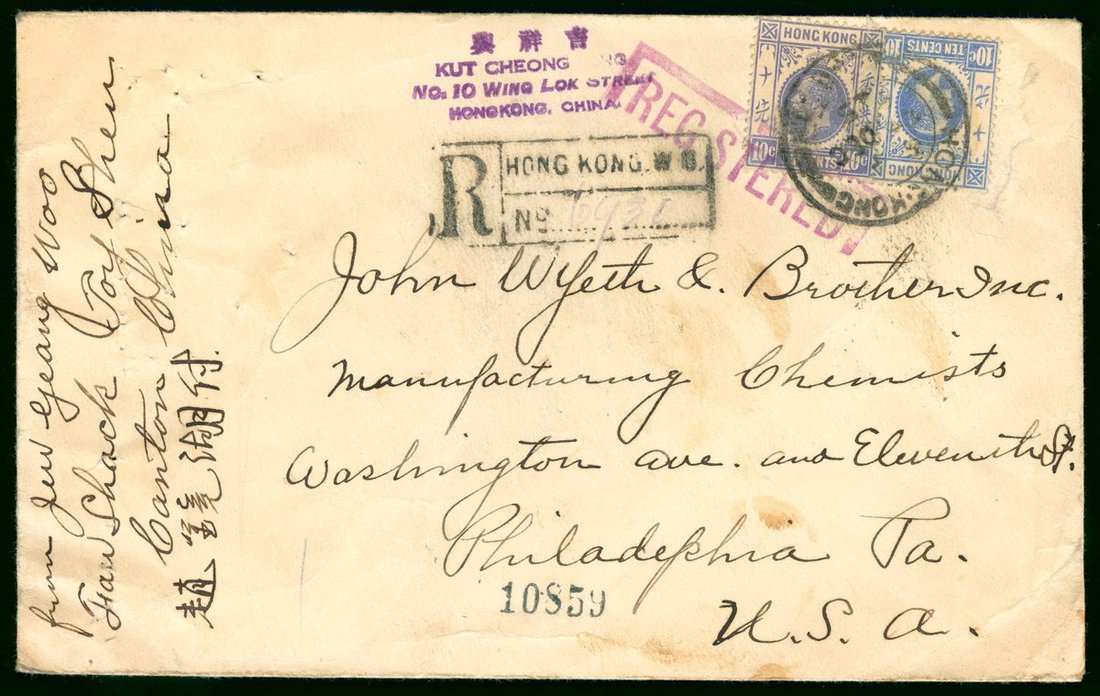 吉祥興
KUT CHEONG
No. 10 WING LOK STREET
HONGKONG, CHINA.
REGISTERED
R
HONG KONG. W.B.
No
HONG KONG
10c
TEN CENTS
10c
HONG KONG
John Wyeth & Brother Inc.
Manufacturing Chemists
Washington ave. and Eleventh St.
Philadelphia Pa.
U. S. A.
10859
from Jew Geang Woo
Shack
Canton China
趙
湖付